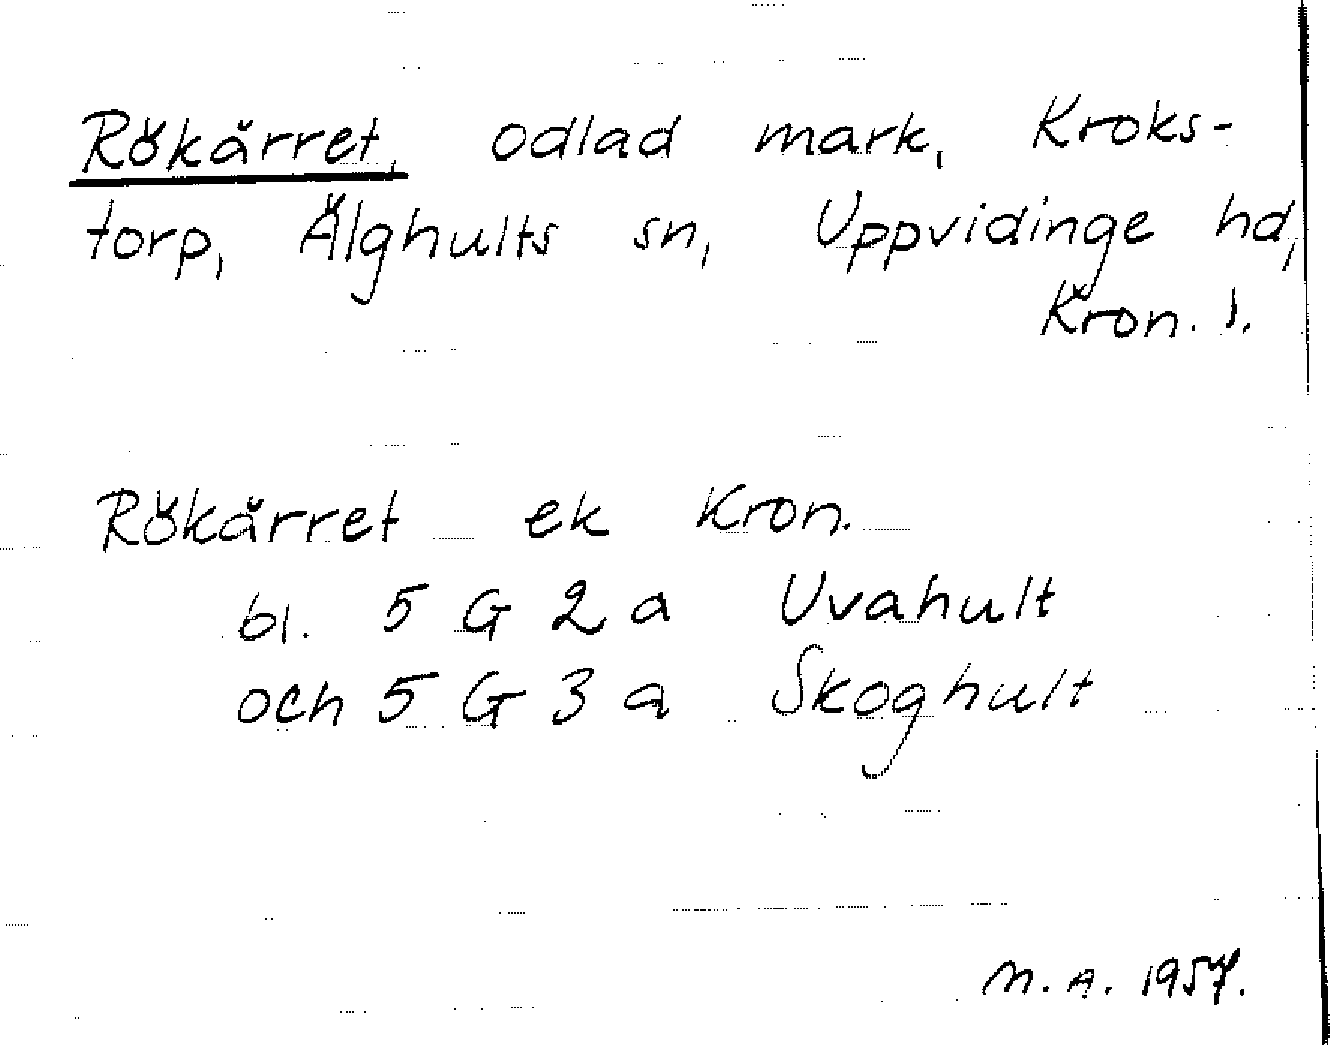 Rökärret, odlad mark, Kroks-
torp, Älghults sn, Uppvidinge hd,
Kron. l.
Rökärret ek Kron.
bl. 5 G 2 a Uvahult
och 5 G 3 a Skoghult
M. A. 1957.